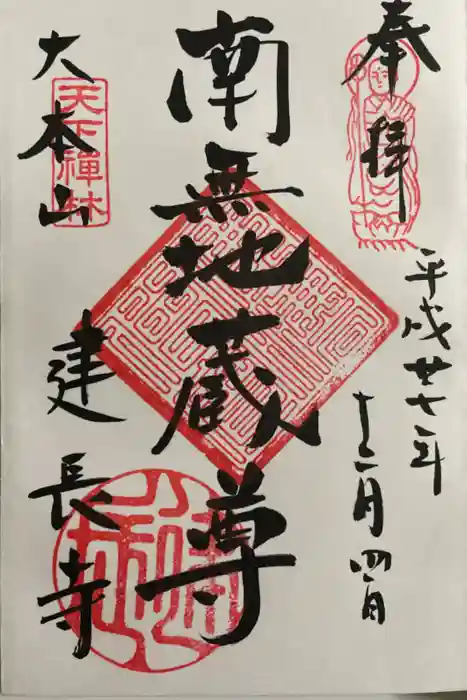 奉拝
平成廿七年
十二月四日
南無地蔵尊
大本山
天下禪林
建長寺